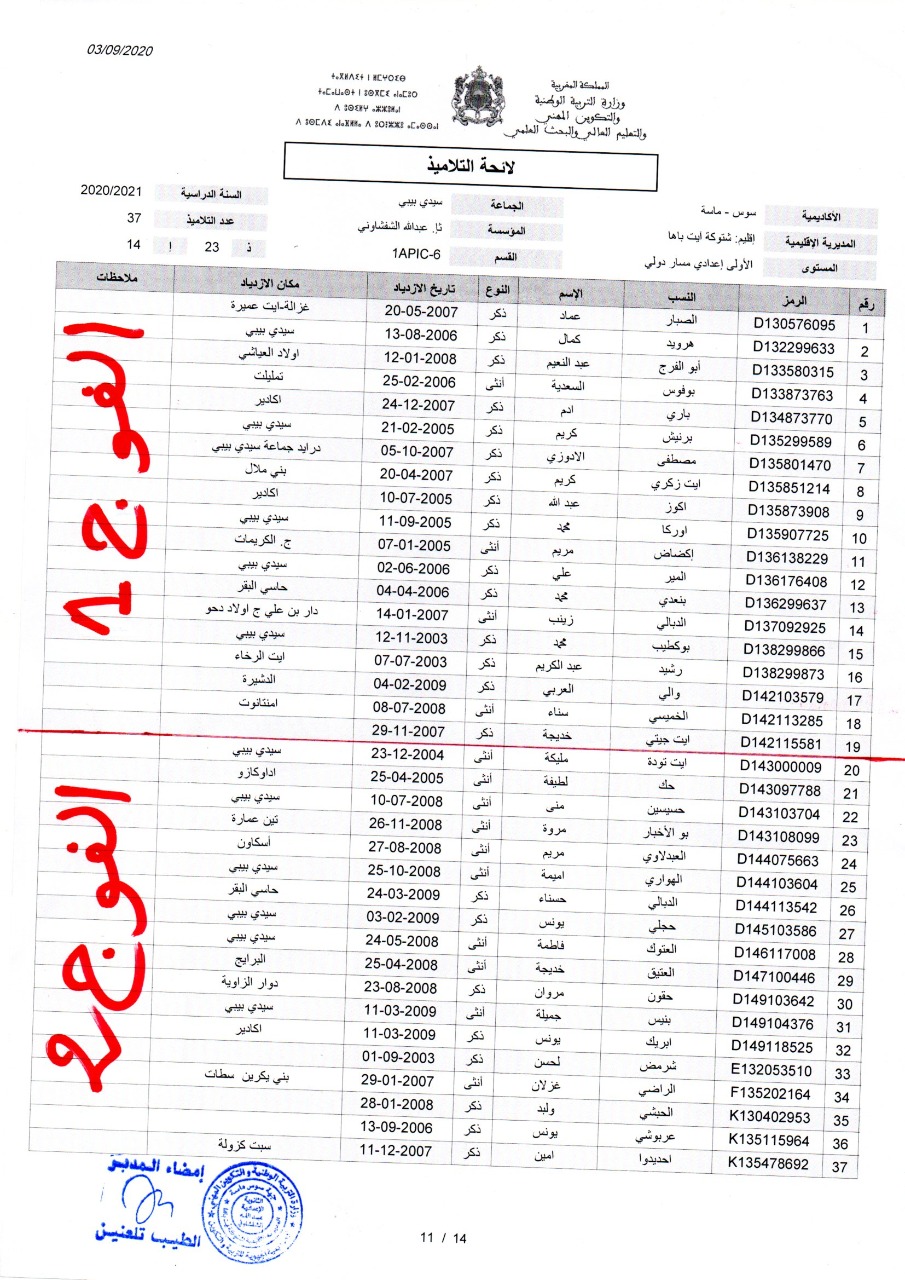 03/09/2020
المملكة المغربية
وزارة التربية الوطنية
والتكوين المهني
والتعليم العالي والبحث العلمي
لائحة التلاميذ
الأكاديمية سوس - ماسة الجماعة سيدي بيبي السنة الدراسية 2020/2021
المديرية الإقليمية إقليم: شتوكة أيت باها المؤسسة ثا. عبدالله الشفشاوني عدد التلاميذ 37
المستوى الأولى إعدادي مسار دولي القسم 1APIC-6 ذ 23 إ 14
رقم الرمز النسب الإسم النوع تاريخ الازدياد مكان الازدياد ملاحظات
1 D130576095 الصبار عماد ذكر 20-05-2007 غزالة-ايت عميرة
2 D132299633 هرويد كمال ذكر 13-08-2006 سيدي بيبي
3 D133580315 أبو الفرج عبد النعيم ذكر 12-01-2008 اولاد العياشي
4 D133873763 بوفوس السعدية أنثى 25-02-2006 تمليلت
5 D134873770 باري ادم ذكر 24-12-2007 اكادير
6 D135299589 برنيش كريم ذكر 21-02-2005 سيدي بيبي
7 D135801470 مصطفى الادوزي ذكر 05-10-2007 درايد جماعة سيدي بيبي
8 D135851214 ايت زكري كريم ذكر 20-04-2007 بني ملال
9 D135873908 اكوز عبد الله ذكر 10-07-2005 اكادير
10 D135907725 اوركا محمد ذكر 11-09-2005 سيدي بيبي
11 D136138229 إكضاض مريم أنثى 07-01-2005 ج. الكريمات
12 D136176408 المير علي ذكر 02-06-2006 سيدي بيبي
13 D136299637 بنعدي محمد ذكر 04-04-2006 حاسي البقر
14 D137092925 الدبالي زينب أنثى 14-01-2007 دار بن علي ج اولاد دحو
15 D138299866 بوكطيب محمد ذكر 12-11-2003 سيدي بيبي
16 D138299873 رشيد عبد الكريم ذكر 07-07-2003 ايت الرخاء
17 D142103579 والي العربي ذكر 04-02-2009 الدشيرة
18 D142113285 الخميسي سناء أنثى 08-07-2008 امنتانوت
19 D142115581 ايت جيتي خديجة ذكر 29-11-2007
20 D143000009 ايت تودة مليكة أنثى 23-12-2004 سيدي بيبي
21 D143097788 حك لطيفة أنثى 25-04-2005 اداوكازو
22 D143103704 حسيسين منى أنثى 10-07-2008 سيدي بيبي
23 D143108099 بو الأخبار مروة أنثى 26-11-2008 تين عمارة
24 D144075663 العبدلاوي مريم أنثى 27-08-2008 أسكاون
25 D144103604 الهواري اميمة أنثى 25-10-2008 سيدي بيبي
26 D144113542 الدبالي حسناء ذكر 24-03-2009 حاسي البقر
27 D145103586 حجلي يونس ذكر 03-02-2009 سيدي بيبي
28 D146117008 العتوك فاطمة أنثى 24-05-2008 سيدي بيبي
29 D147100446 العتيق خديجة أنثى 25-04-2008 البرايج
30 D149103642 حقون مروان ذكر 23-08-2008 دوار الزاوية
31 D149104376 بنيس جميلة أنثى 11-03-2009 سيدي بيبي
32 D149118525 ابريك يونس ذكر 11-03-2009 اكادير
33 E132053510 شرمض لحسن ذكر 01-09-2003
34 F135202164 الراضي غزلان أنثى 29-01-2007 بني يكرين سطات
35 K130402953 الحبشي وليد ذكر 28-01-2008
36 K135115964 عربوشي يونس ذكر 13-09-2006
37 K135478692 احديدوا امين ذكر 11-12-2007 سبت كزولة
الفوج 1
الفوج 2
إمضاء المدير
الطيب تلعنين
11 / 14